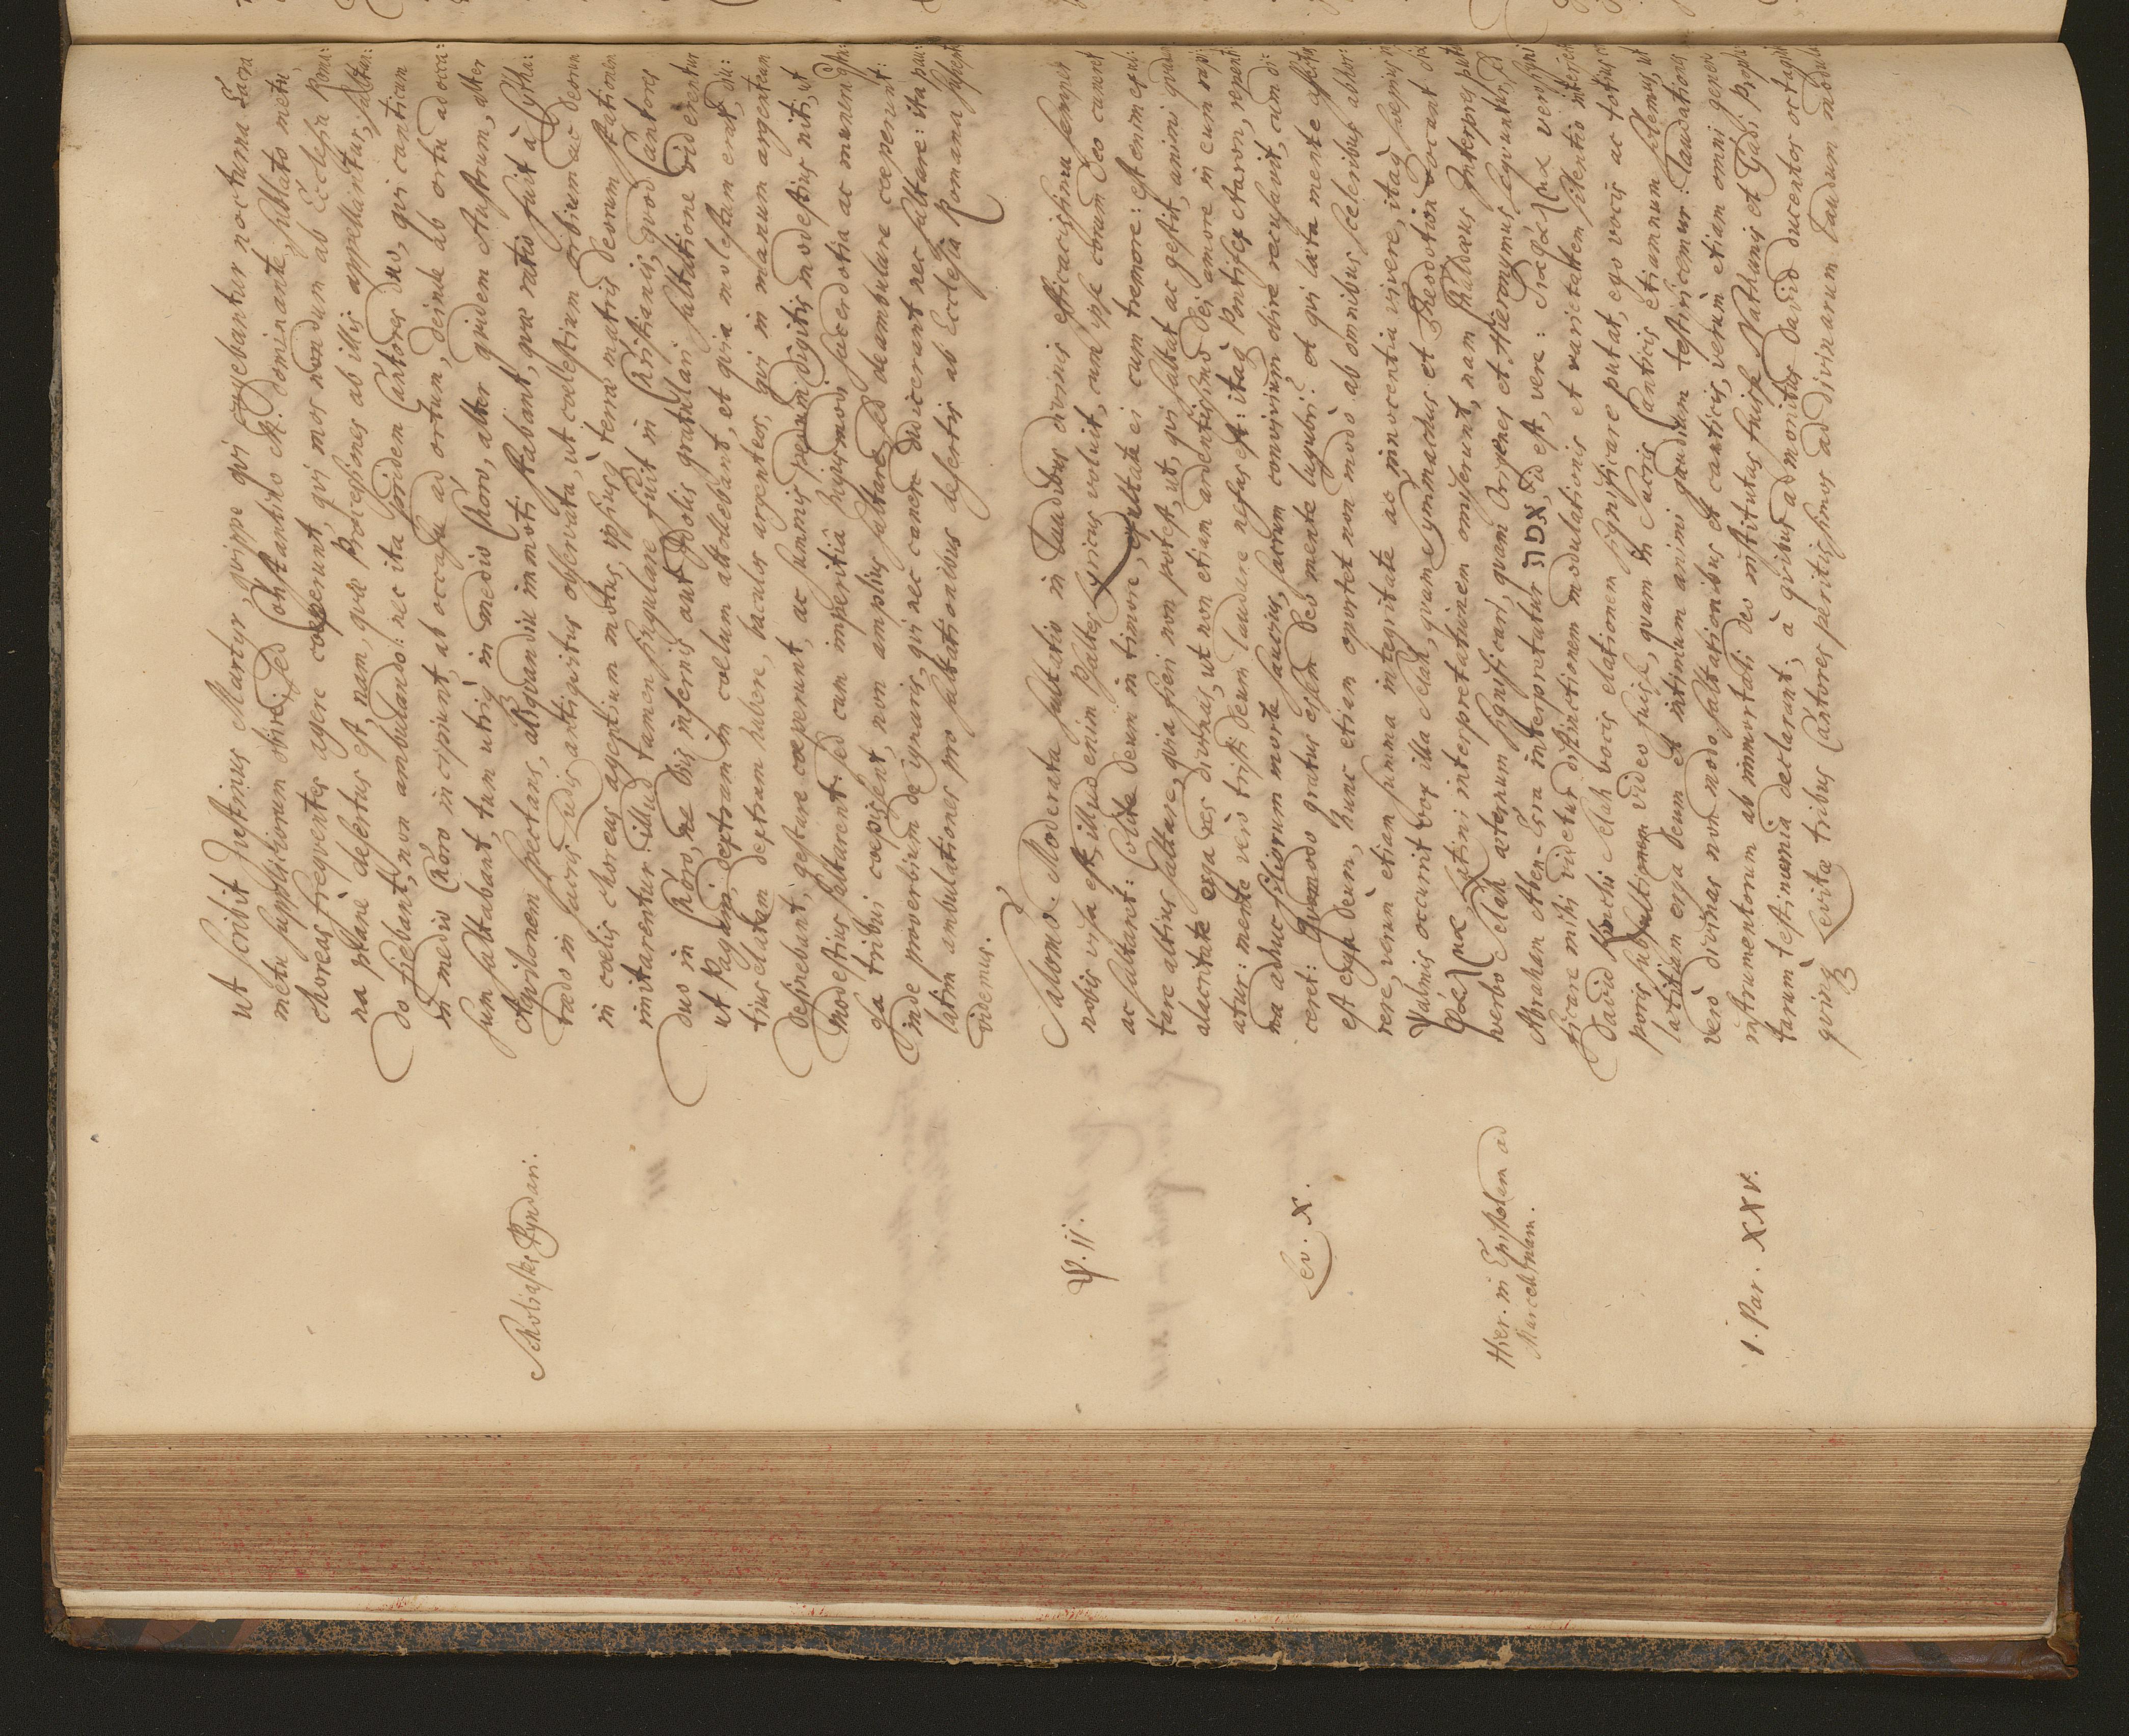 ut scribit Justinus Martyr, quippe qui cogebantur nocturna sacra
metu supplitiorum obire: sed Constantino M. dominante, sublato metu,
choreas frequentes agere coeperunt, qui mos nondum ab Ecclesia Roma:
na planè desertus est, nam, quae Processiones ab illis appellantur, saltan:
do fiebant, non ambulando: nec ita pridem Cantores duo, qui canticum
in medio Choro incipiunt, ab occasu ad ortum, deinde ab ortu ad occa:
sum saltabant, tum utriq in medio Choro, alter quidem Austrum, alter
Aquilonem spectans, aliquandiu immoti stabant, quae ratio fuit à Pytha:
in sacris ludis antiquitus observata, ut coelestium orbium ac deorum
in coelis choreas agentium motus, ipsiusq terrae matris deorum stationem
imitarentur: illud tamen singulare fuit in Christianis, quod Cantores
duo in Choro, ne Diis infernis aut Idolis gratulari saltatione viderentur
ut Pagani, dextram in coelum attollebant, et quia molestum erat, diu:
tius elatam dextram habere, baculos argenteos, qui in manum argenteam
desinebant, gestare coeperunt, ac summis pedum digitis modestius niti, ut
modestius saltarent: sed cum imperitiâ hujusmodi sacerdotia ac munera
tribui coepissent, non amplius saltare, sed deambulare coeperunt:
inde proverbium de ignaris, qui nec canere didicerant nec saltare: ita pau:
latim ambulationes pro saltationibus desertis ab Ecclesia Romana
videmus.
Salomo. Moderata saltatio in laudibus divinis efficacissima semper
nobis visa est, illud enim Psaltes Lyricus voluit, cum ipse coram Deo caneret
ac saltaret: Colite Deum in timore, exultate ei cum tremore: est enim exul:
tare altius saltare, quia fieri non potest, ut, qui saltat ac gestit, animi
alacritate erga res divinas, ut non etiam ardentissimo Dei amore in eum rapi:
atur: mente verò tristi Deum laudare nefas est: itaq Pontifex Aaron, repenti:
na adhuc filiorum morte saucius, sacrum convivium obire recusavit, cum di:
ceret: Quomodo gratus essem Deo mente lugubri? et qui laeta mente
est erga Deum, hunc etiam oportet non modò ab omnibus sceleribus abhor:
rere, verum etiam summa integritate ac innocentia vivere, itaq saepius in
Psalmis occurrit vox illa selah, quam Symmachus et Theodotion vocant
Latini interpretationem omiserunt, nam Chaldaeus Interpres
verbo Selah aeternum significari, quam Origenes et Hieronymus sequuntur,
Abraham Aben-Esra interpretatur אמת, id est, vere:
ficare mihi videtur distinctionem modulationis et varietatem silentio
David Kimchi selah vocis elationem significare putat, ego vocis ac totius
poris subsultionem video fuisse, quam in sacris Canticis etiamnum solemus, ut
laetitiam erga Deum et intimum animi gaudium testificemur: Laudationes
verò divinas non modo saltationibus et canticis, verum etiam omni genere
instrumentorum ab immortali Deo institutas fuisse Nathanis et Gadi
tarum testimonia declarant; à quibus admonitus David ducentos octaginta
Levitas tribus Cantores peritissimos ad divinarum laudum
Scholiastes Pyndari.
ψ. ij.
Lev. X.
Hier. in Epistolam ad
Marcellinam.
1. Par. XXV.